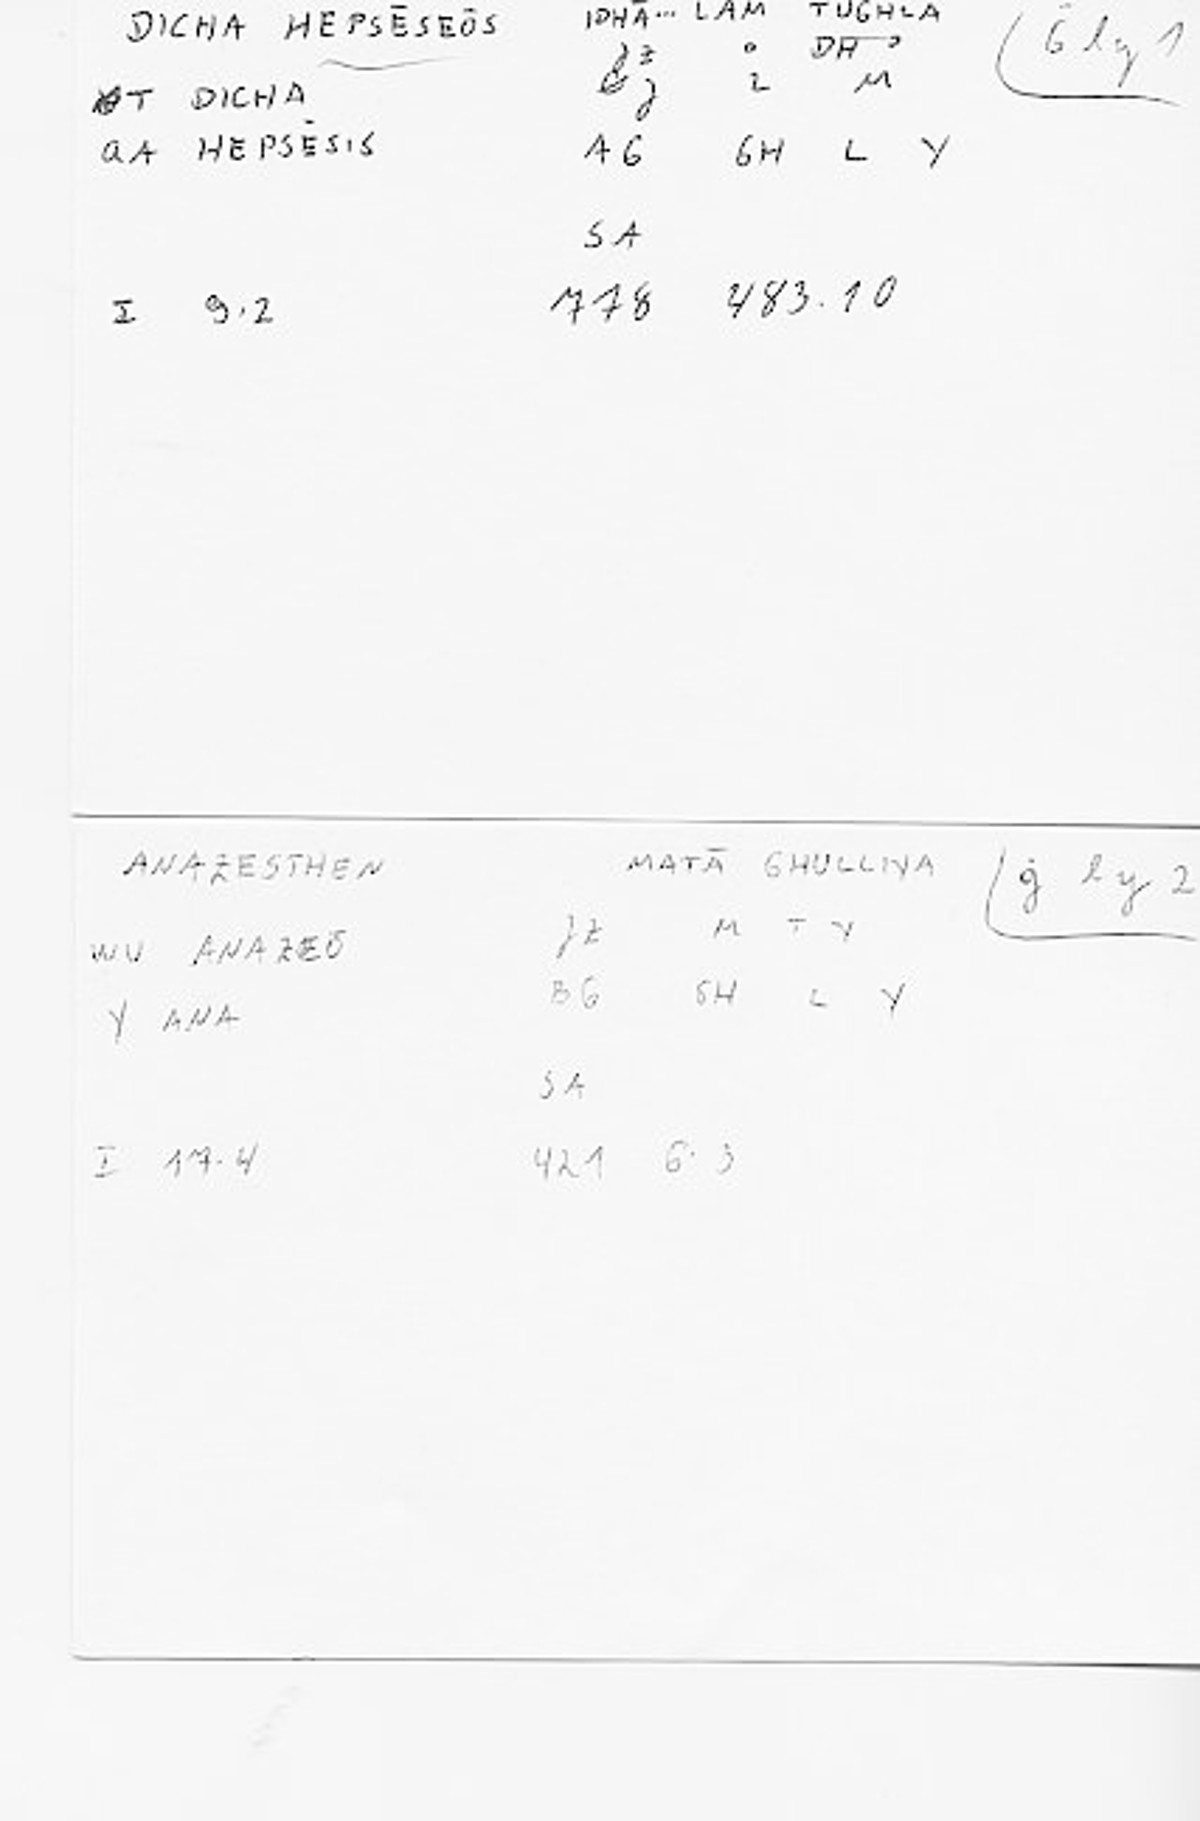 DICHA HEPSĒSEŌS IDHĀ... LAM TUGHLA Ġ ly 1
jz ° DH °
T DICHA j L M
aA HEPSĒSIS AG GH L Y
SA
I 9.2 778 483.10
ANAZESTHEN MATĀ GHULLIYA ġ ly 2
WV ANAZEŌ jz M T Y
Y ANA BG GH L Y
SA
I 17.4 421 6.3